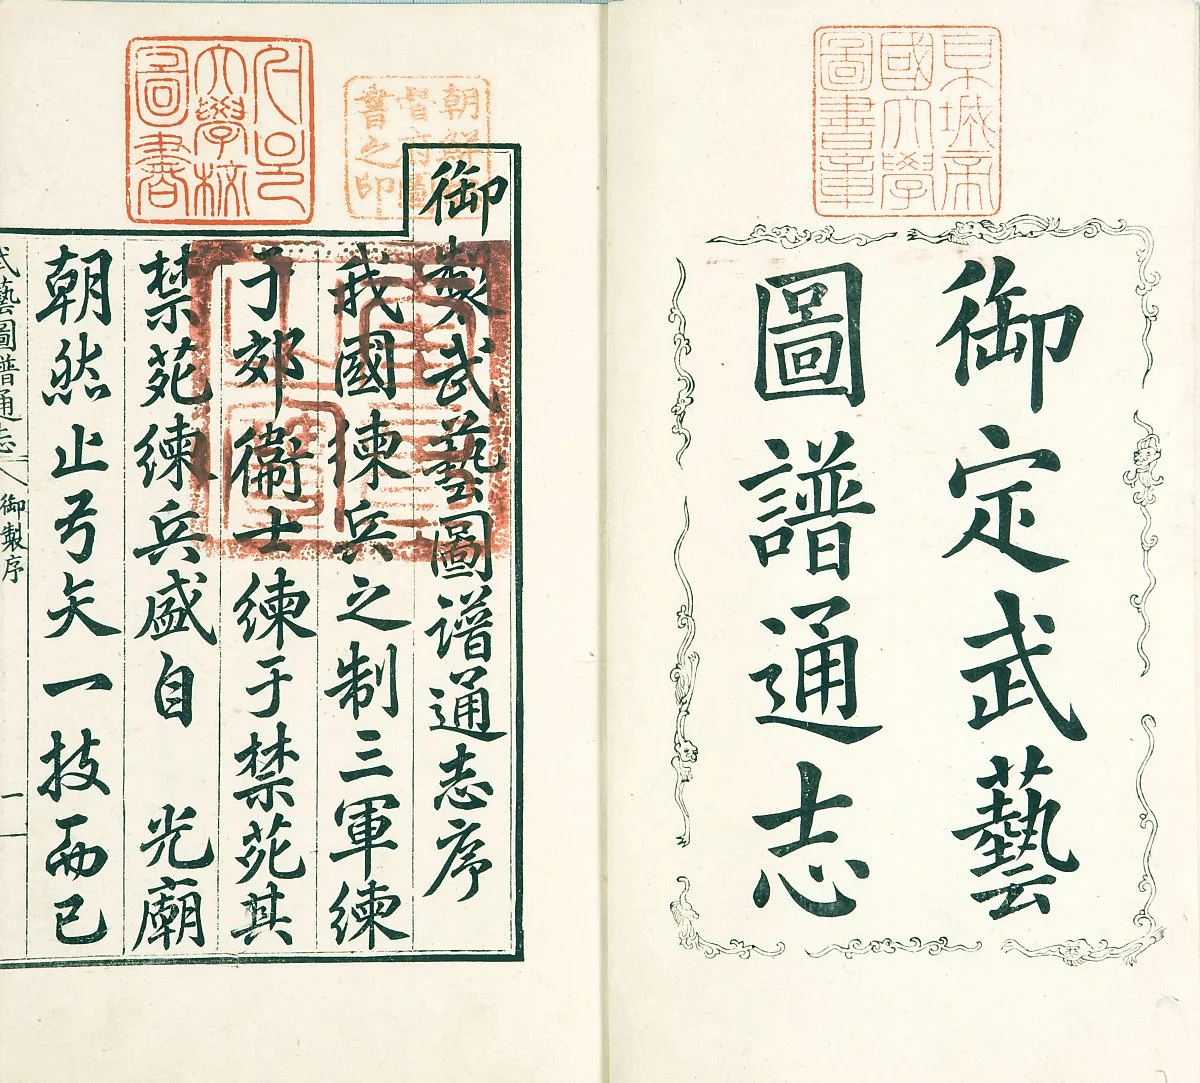 御定武藝
圖譜通志
京城帝
國大學
圖書章
御製武藝圖譜通志序
我國練兵之制三軍練
于郊衞士練于禁苑其
禁苑練兵盛自 光廟
朝然止弓矢一技而已
武藝圖譜通志 御製序 一
大學校
圖書
朝鮮
書之印